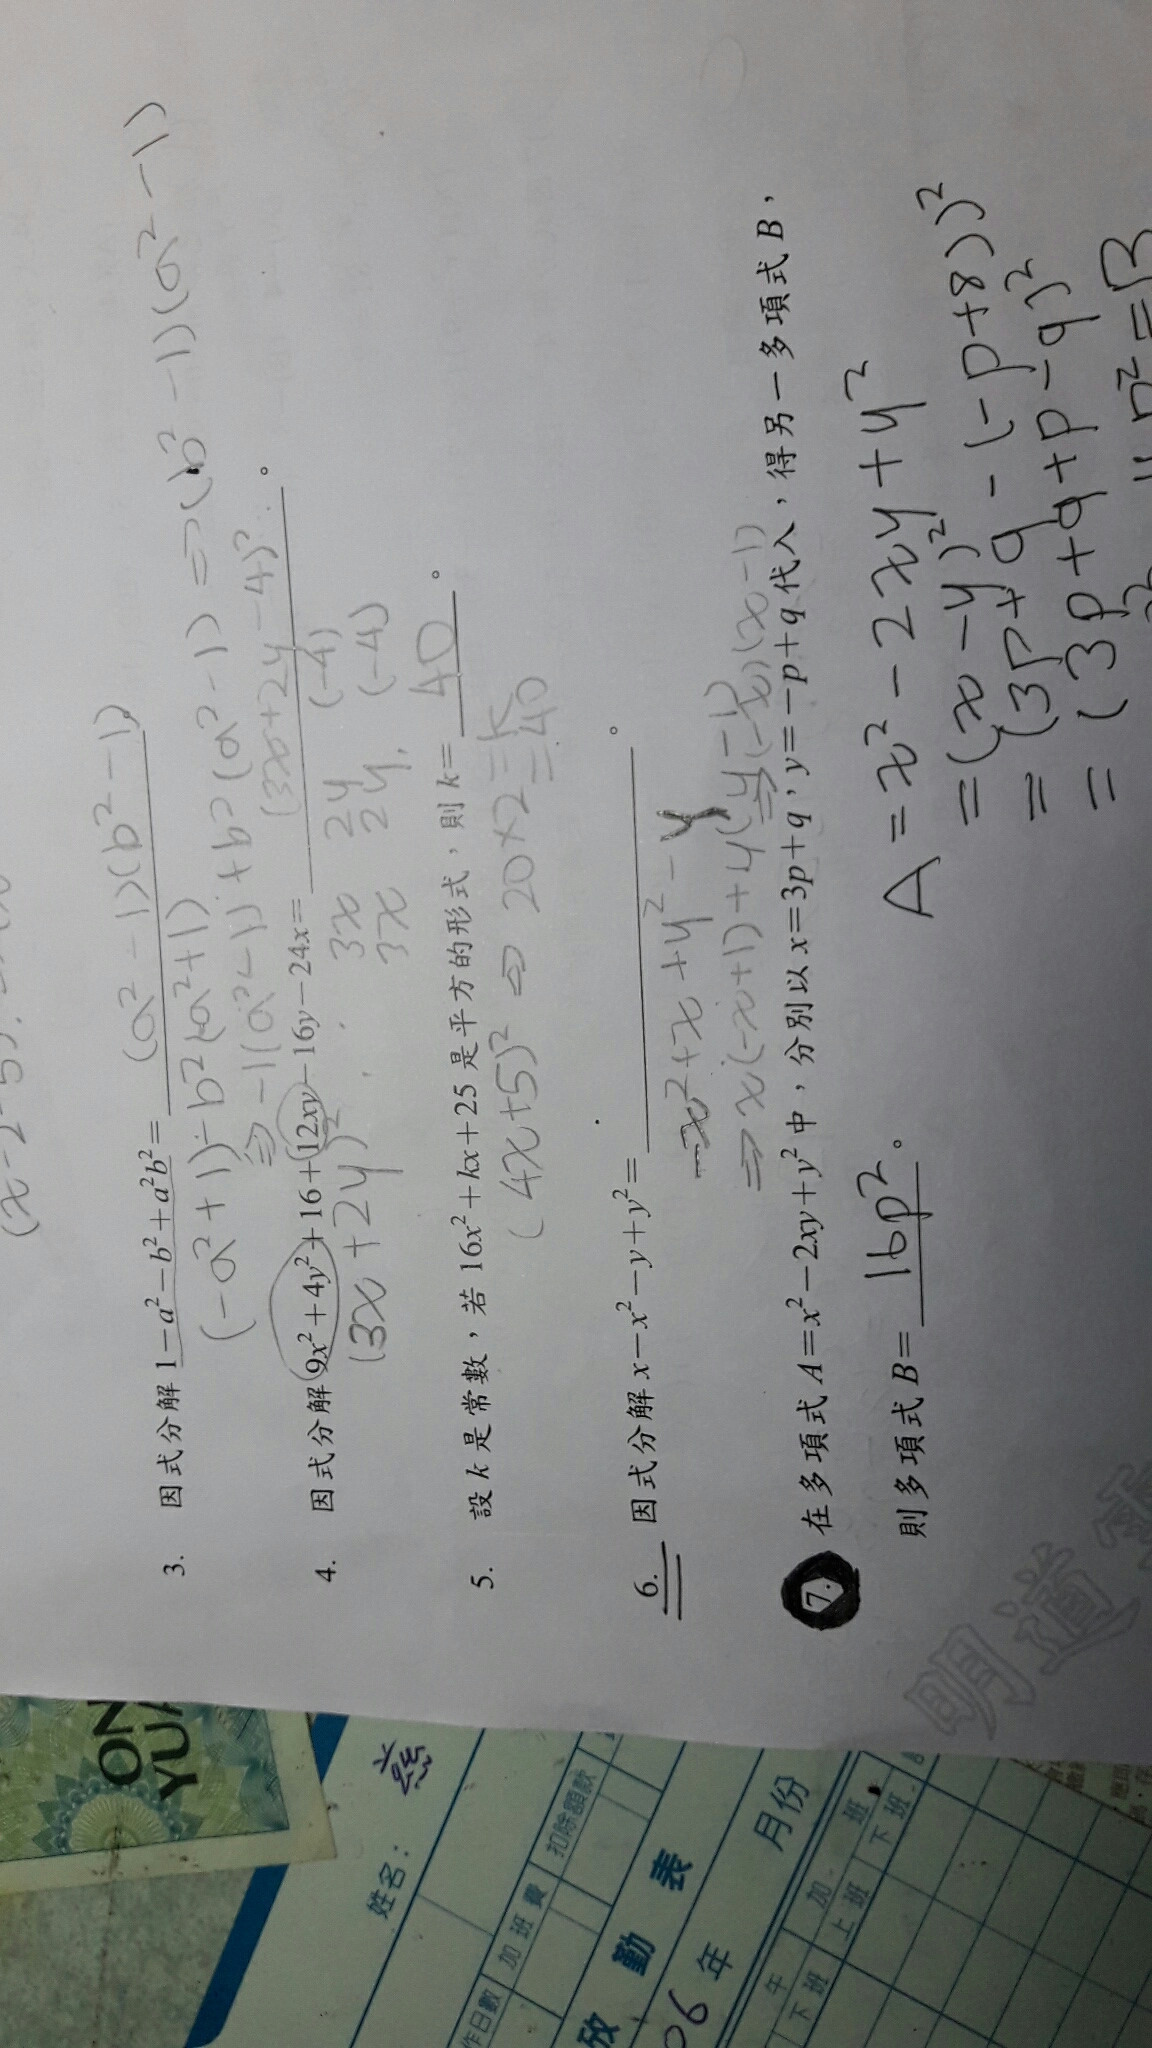 (a²-1)(b²-1)
3. 因式分解 1-a²-b²+a²b²=
(-a²+1)-b²(a²+1)
⇒-1(a²-1)+b²(a²-1)⇒(b²-1)(a²-1)
(3x+2y-4)²
4. 因式分解 9x²+4y²+16+12xy-16y-24x= 。
(3x+2y)²
3x 2y (-4)
3x 2y (-4)
5. 設 k 是常數，若 16x²+kx+25 是平方的形式，則 k= 40 。
(4x+5)² ⇒ 20×2=k
=40
6. 因式分解 x-x²-y+y²= 。
-x²+x+y²-y
⇒x(-x+1)+y(y-1)
⇒(-x)(x-1)
7. 在多項式 A=x²-2xy+y² 中，分別以 x=3p+q，y=-p+q 代入，得另一多項式 B，
則多項式 B= 16p² 。
A=x²-2xy+y²
=(x-y)²
=(3p+q-(-p+8))²
=(3p+q+p-q)²
明道
ON
YUA
姓名：
作日數
加班費
扣除額款
勤表
06年
月份
午
下班
加班
上班
下班